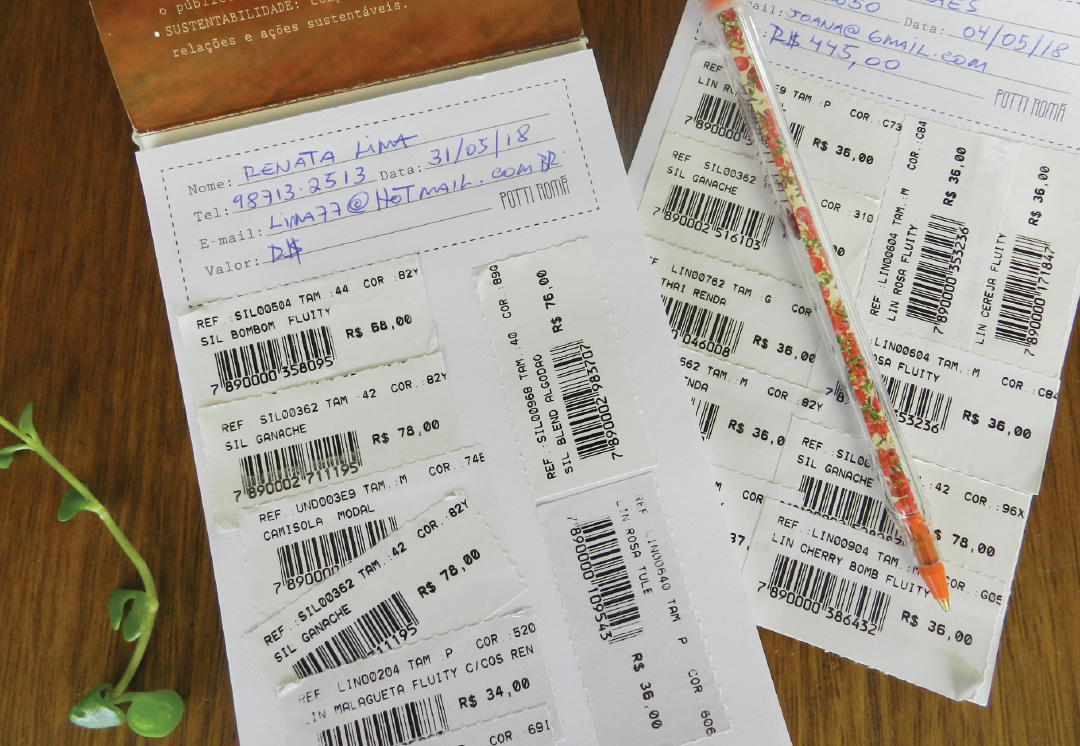 o públic
• SUSTENTABILIDADE:
relações e ações sustentáveis.
Nome: RENATA LIMA
Tel: 98713.2513 Data: 31/05/18
E-mail: LIMA77@HOTMAIL.COM.BR
Valor: R$
POTTI ROMÃ
REF .:SIL00504 TAM .:44 COR .:B2Y
SIL BOMBOM FLUITY
R$ 68,00
7 890000 358095
REF .: SIL00362 TAM .:42 COR .:B2Y
SIL GANACHE
R$ 78,00
7 890002 711195
REF .:UND003E9 TAM.:M COR .:74E
CAMISOLA MODAL
7 890000
REF .:SIL00362 TAM .:42 COR .:B2Y
SIL GANACHE
R$ 78,00
11195
REF LIN00204 TAM .:P COR .:520
LIN MALAGUETA FLUITY C/COS REN
R$ 34,00
69I
REF .:SIL00968 TAM .:40 COR .:89G
SIL BLEND ALGODAO
R$ 76,00
7 890002 983707
REF .: LIN00640 TAM P COR 606
LIN ROSA TULE
7 890000 109543
R$ 36,00
Data: 04/05/18
mail: JOANA@GMAIL.COM
R$ 445,00
POTTI ROMÃ
REF
E9 TAM .:P COR .:C73
7 890000
R$ 36,00
REF .: SIL00362
SIL GANACHE
.:310
7 890002 516103
LIN00762 TAM .:G COR
THAI RENDA
046008
R$ 36,00
562 TAM .:M COR .:B2Y
ENDA
R$ 36,0
37,
REF .:LIN00604 TAM.:M COR .:CB4
LIN ROSA FLUITY
R$ 36,00
7 890000 353236
LIN CEREJA FLUITY
R$ 36,00
7 890000 171847
LIN00604 TAM .:M COR .:CB4
OSA FLUITY
353236
R$ 36,00
REF .:SIL00
:42 COR .:96X
SIL GANACHE
R$ 78,00
REF .:LIN00904 TAM.:M COR .:G05
LIN CHERRY BOMB FLUITY
7 890000 386432
R$ 36,00